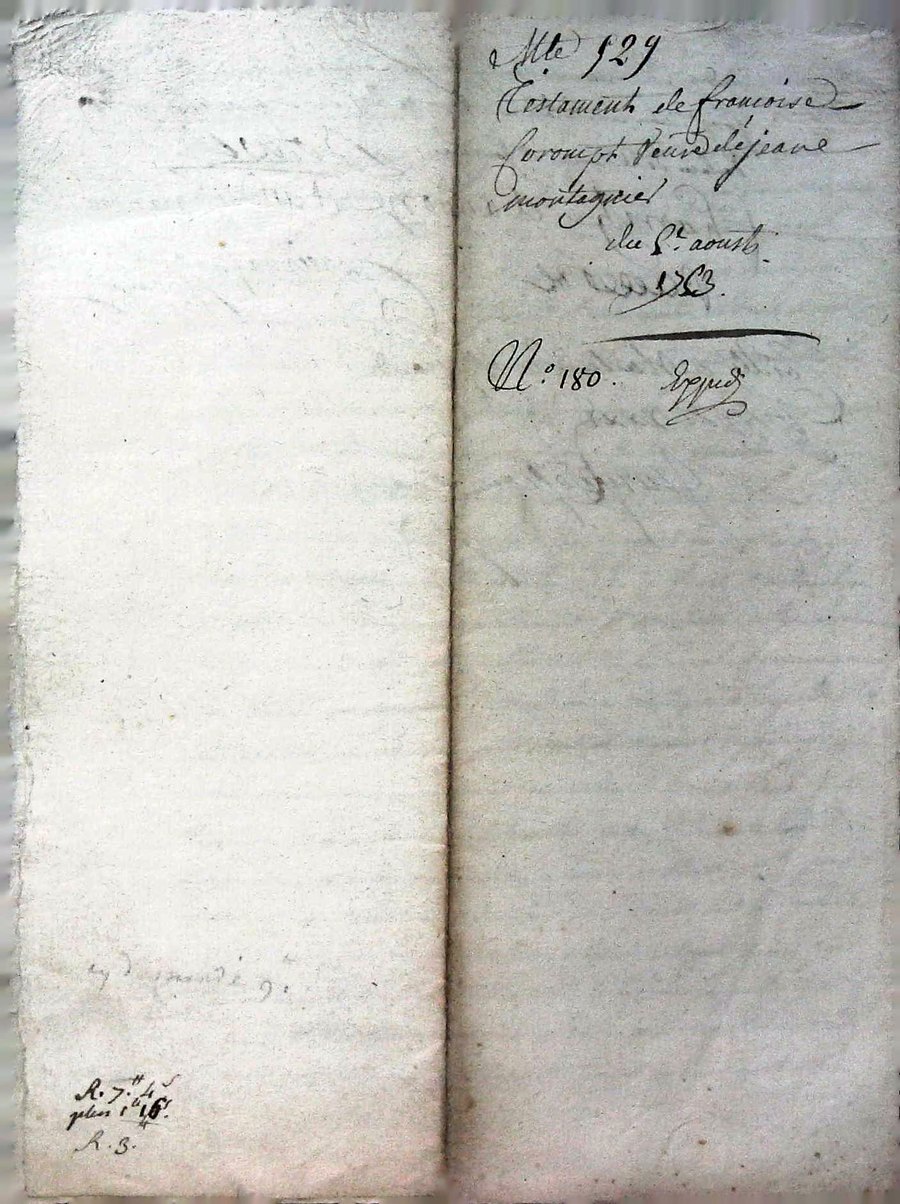 Mte 529
Testament de francoise
Corompt Veuve déjeane
montagnier
du 5e. aoust
1763.
N.o 180. Expedé
R. 7.# 4s
plus 1# 16s.
R. 3.